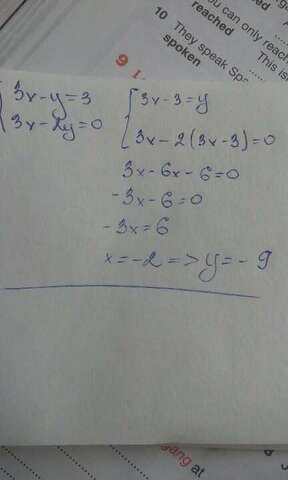 ou can only reach
reached
10 They speak Spa
spoken
This is
9
3x-y=3
3x-2y=0
3x-3=y
3x-2(3x-3)=0
3x-6x-6=0
-3x-6=0
-3x=6
x=-2=>y=-9
at